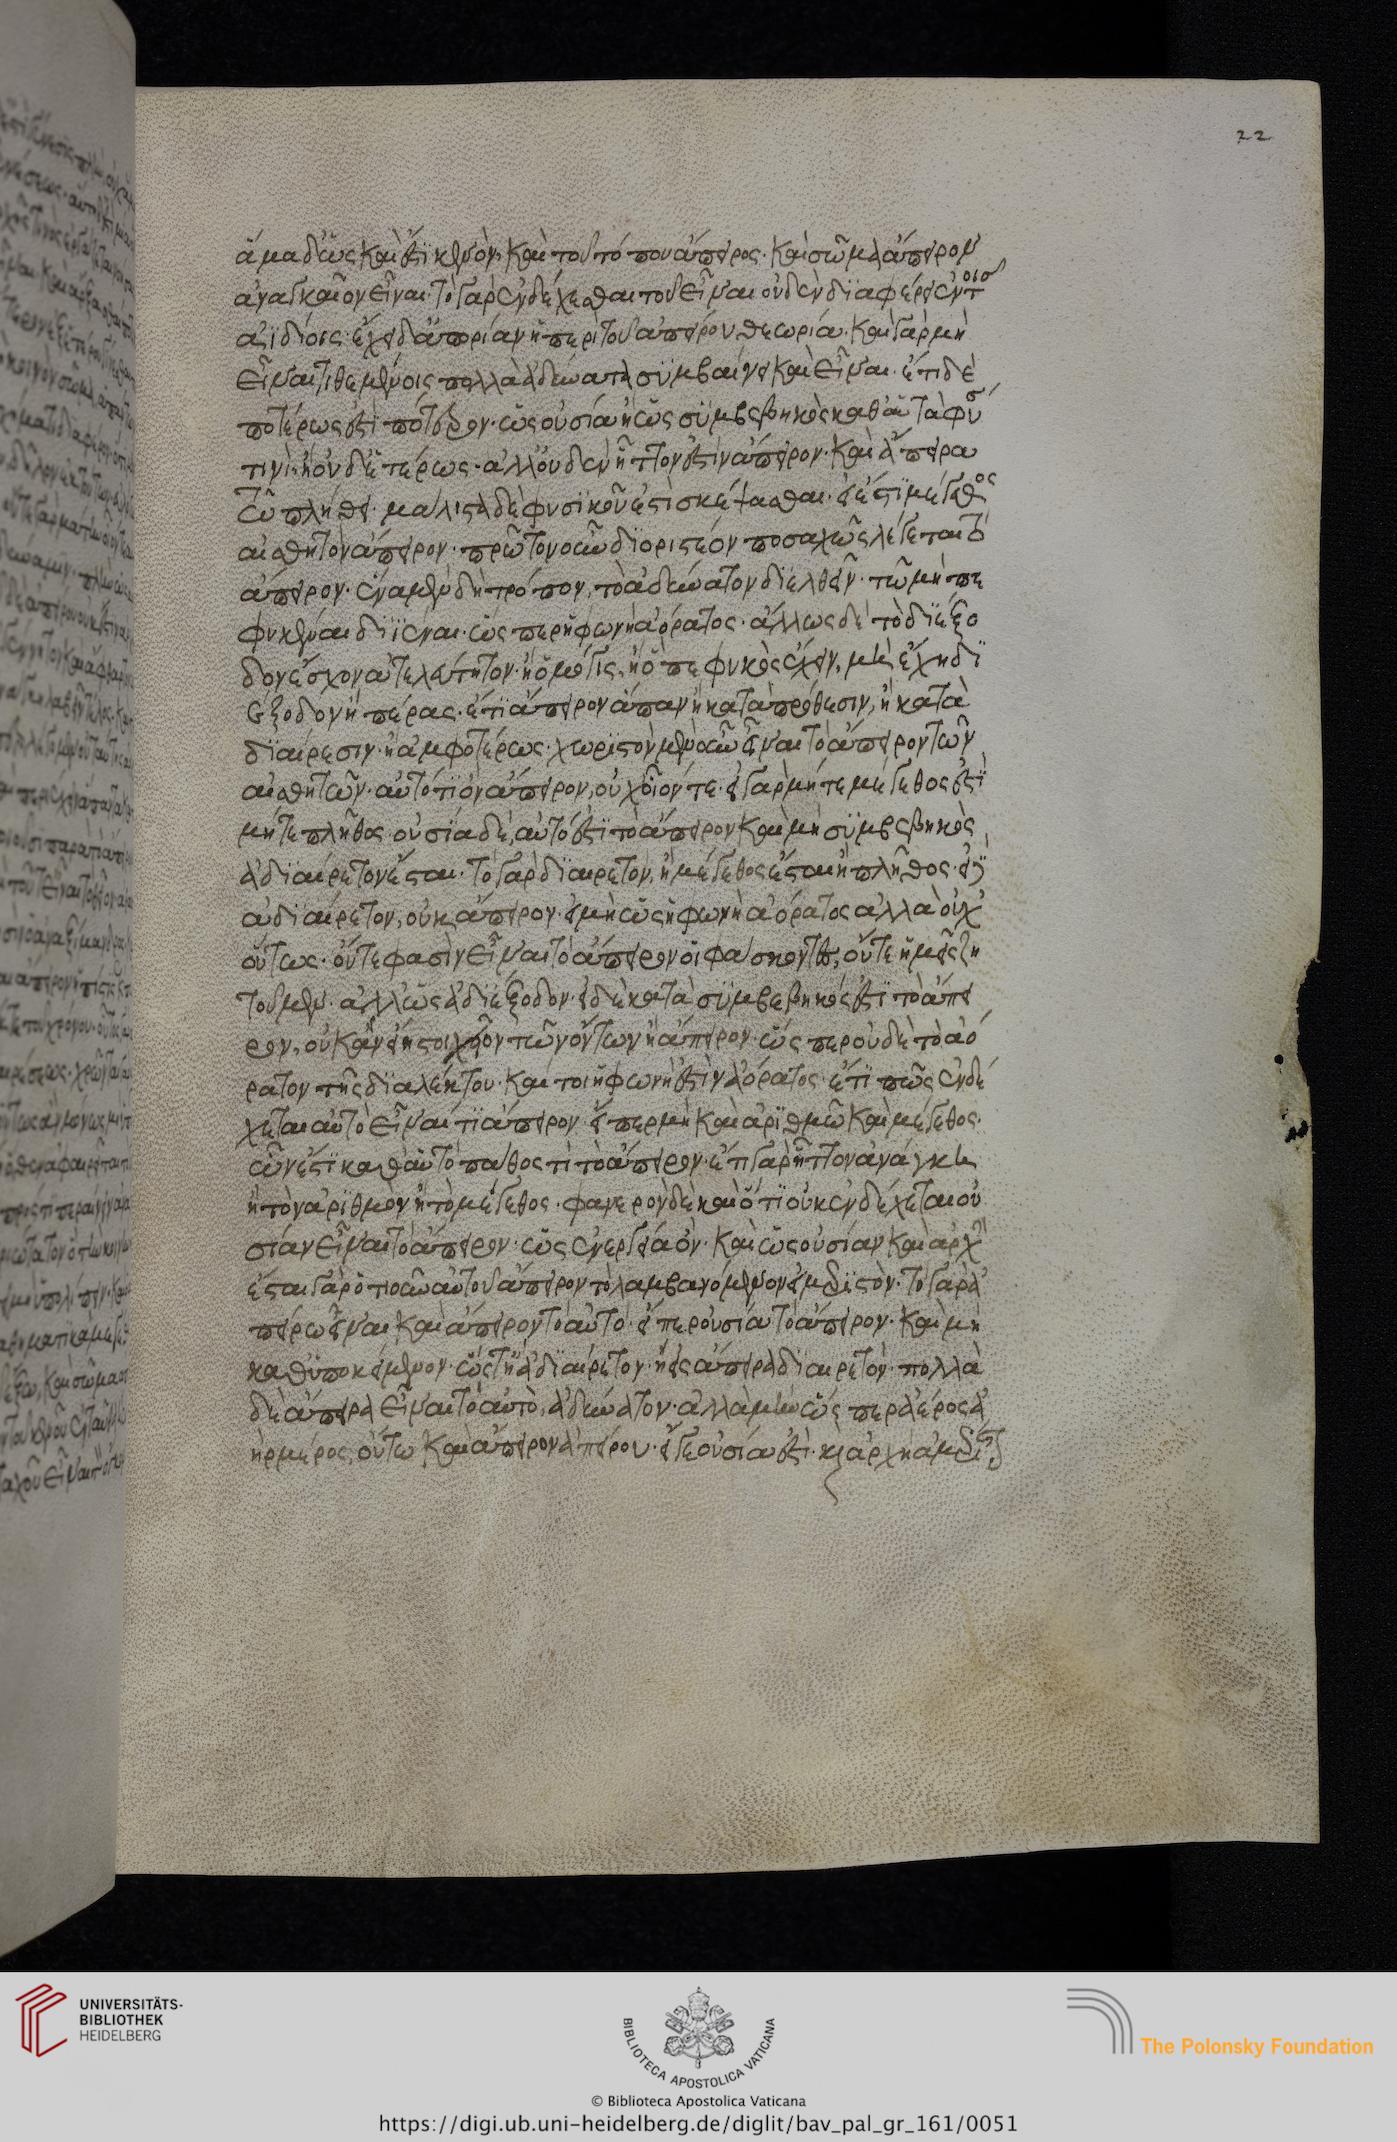 ἅμα δ' ὡς καὶ ἔστι κενὸν· καὶ τοῦ τόπου ἄπειρος· καὶ σῶμα ἄπειρον
ἀναγκαῖον εἶναι· τὸ γὰρ ἐνδέχεσθαι τοῦ εἶναι οὐδὲν διαφέρει ἐν τοῖς
αϊδίοις· ἔχει δ' ἀπορίαν ἡ περὶ τοῦ ἀπείρου θεωρία· καὶ γὰρ μὴ
εἶναι τιθεμένοις πολλὰ ἀδύνατα συμβαίνει καὶ εἶναι· ἔτι δὲ
ποτέρως ἐστὶ πότερον· ὡς οὐσία ἢ ὡς συμβεβηκὸς καθ' αὑτὰ φύσει
τινί· ἢ οὐδετέρως· ἀλλ' οὐδὲν ἧττον ἐστὶν ἄπειρον· καὶ ἄπειρα
τῷ πλήθει· μάλιστα δὲ φυσικοῦ ἐστὶ σκέψασθαι· εἰ ἔστι μέγεθος
αἰσθητὸν ἄπειρον· πρῶτον οὖν διοριστέον ποσαχῶς λέγεται τὸ
ἄπειρον· ἕνα μὲν δὴ τρόπον, τὸ ἀδύνατον διελθεῖν· τῷ μὴ πε
φυκέναι διϊέναι· ὥσπερ ἡ φωνὴ ἀόρατος· ἄλλως δὲ τὸ διέξο
δον ἔχον ἀτελεύτητον· ἢ ὃ μόγις, ἢ ὃ πεφυκὸς ἔχειν, μὴ ἔχη δι
έξοδον ἢ πέρας· ἔτι ἄπειρον ἅπαν ἢ κατὰ πρόθεσιν, ἢ κατὰ
διαίρεσιν· ἢ ἀμφοτέρως· χωριστὸν μὲν οὖν εἶναι τὸ ἄπειρον τῶν
αἰσθητῶν· αὐτό τι ὂν ἄπειρον, οὐχ οἷόν τε· εἰ γὰρ μήτε μέγεθος ἐστὶ
μήτε πλῆθος· οὐσία δὲ, αὐτό ἐστι τὸ ἄπειρον καὶ μὴ συμβεβηκὸς
ἀδιαίρετον ἔσται· τὸ γὰρ διαιρετὸν, ἢ μέγεθος ἔσται ἢ πλῆθος· εἰ δ'
ἀδιαίρετον, οὐκ ἄπειρον· εἰ μὴ ὡς ἡ φωνὴ ἀόρατος ἀλλὰ οὐχ'
οὕτως· οὔτε φασὶν εἶναι τὸ ἄπειρον οἱ φάσκοντες, οὔτε ἡμεῖς ζη
τοῦμεν· ἀλλ' ὡς ἀδιέξοδον· εἰ δὲ κατὰ συμβεβηκός ἐστι τὸ ἄπει
ρον, οὐκ ἂν εἴη στοιχεῖον τῶν ὄντων ἢ ἄπειρον· ὥσπερ οὐδὲ τὸ ἀό
ρατον τῆς διαλέκτου· καί τοι ἡ φωνή ἐστιν ἀόρατος· ἔτι πῶς ἐνδέ
χεται αὐτὸ εἶναί τι ἄπειρον· εἴπερ μὴ καὶ ἀριθμῶ καὶ μέγεθος·
ὧν ἐστὶ καθ' αὑτὸ πάθος τι τὸ ἄπειρον· ἔτι γὰρ ἧττον ἀνάγκη
ἢ τὸν ἀριθμὸν ἢ τὸ μέγεθος· φανερὸν δὲ καὶ ὅτι οὐκ ἐνδέχεται οὐ
σίαν εἶναι τὸ ἄπειρον· ὡς ἐνεργεία ὂν· καὶ ὡς οὐσίαν καὶ ἀρχὴν
ἔσται γὰρ ὁτιοῦν αὐτοῦ ἄπειρον τὸ λαμβανόμενον εἰ μεριστὸν· τὸ γὰρ ἀ
πείρω εἶναι καὶ ἄπειρον τὸ αὐτό· εἴπερ οὐσία τὸ ἄπειρον· καὶ μὴ
καθ' ὑποκειμένου· ὥστ' ἢ ἀδιαίρετον· ἢ εἰς ἄπειρα διαιρετὸν· πολλὰ
δὲ ἄπειρα εἶναι τὸ αὐτὸ, ἀδύνατον· ἀλλὰ μὴν ὥσπερ ἀέρος ἀ
ὴρ μέρος, οὕτω καὶ ἄπειρον ἀπείρου· εἴ γε οὐσία ἐστὶ· καὶ ἀρχὴ ἀμέριστ
22
UNIVERSITÄTS-
BIBLIOTHEK
HEIDELBERG
BIBLIOTECA APOSTOLICA VATICANA
© Biblioteca Apostolica Vaticana
The Polonsky Foundation
https://digi.ub.uni-heidelberg.de/diglit/bav_pal_gr_161/0051